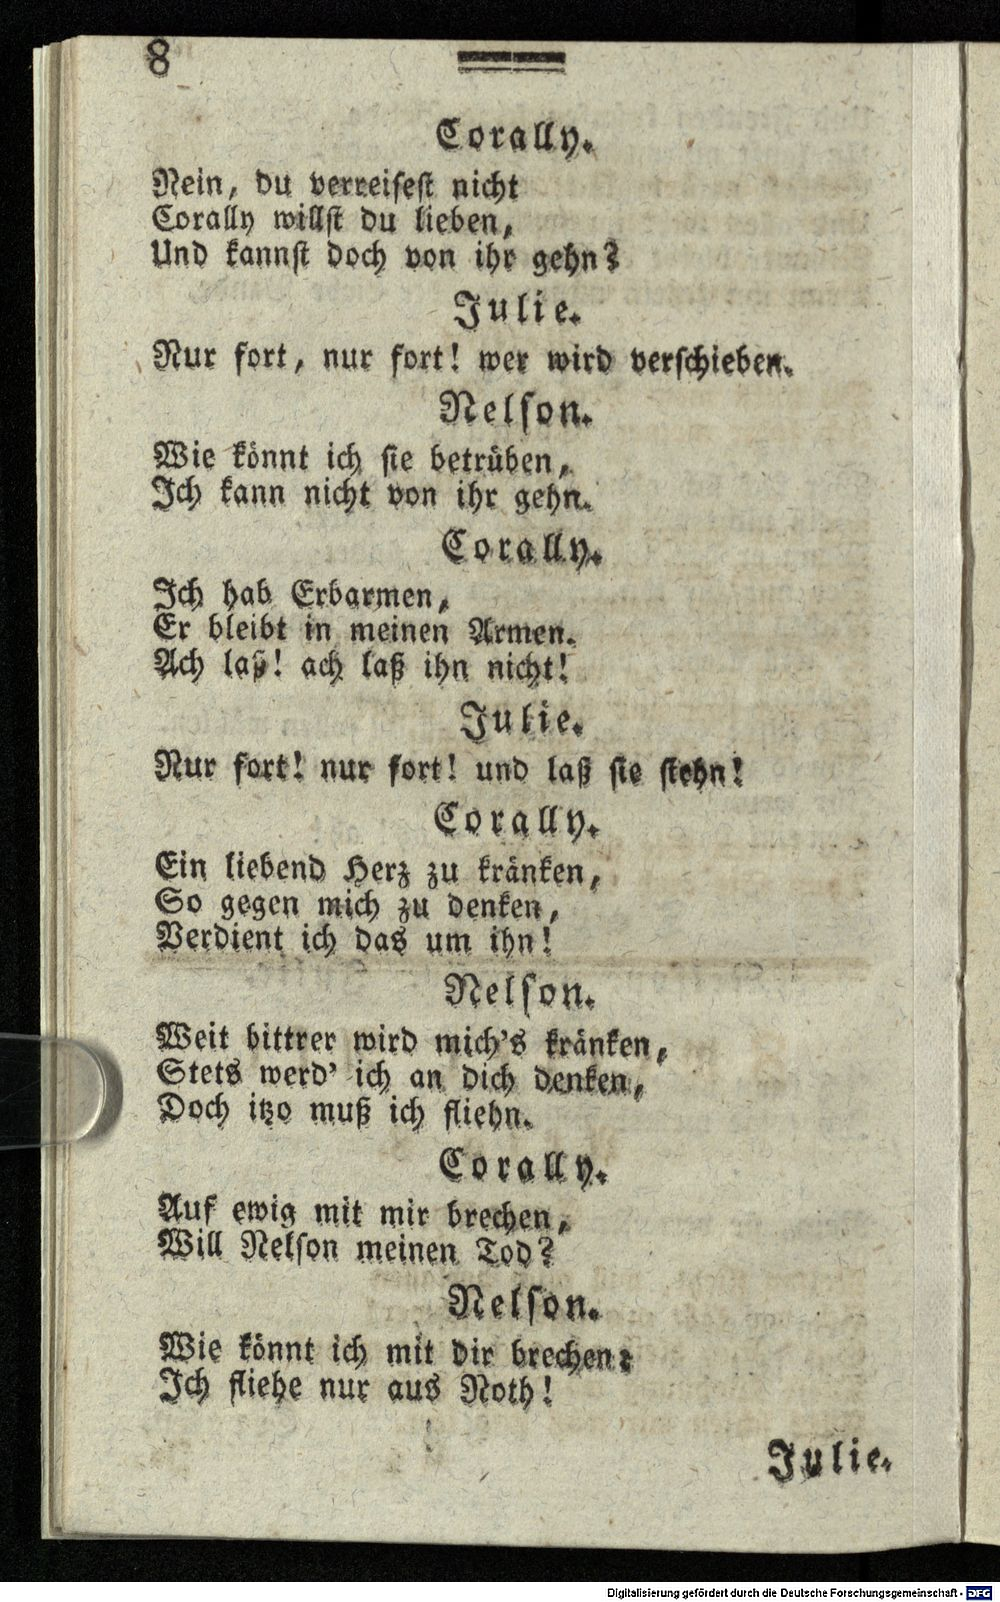 8
Corally.
Nein, du verreisest nicht
Corally willst du lieben,
Und kannst doch von ihr gehn?
Julie.
Nur fort, nur fort! wer wird verschieben.
Nelson.
Wie könnt ich sie betrüben,
Ich kann nicht von ihr gehn.
Corally.
Ich hab Erbarmen,
Er bleibt in meinen Armen.
Ach laß! ach laß ihn nicht!
Julie.
Nur fort! nur fort! und laß sie stehn!
Corally.
Ein liebend Herz zu kränken,
So gegen mich zu denken,
Verdient ich das um ihn!
Nelson.
Weit bittrer wird mich's kränken,
Stets werd' ich an dich denken,
Doch itzo muß ich fliehn.
Corally.
Auf ewig mit mir brechen,
Will Nelson meinen Tod?
Nelson.
Wie könnt ich mit dir brechen:
Ich fliehe nur aus Noth!
Julie.
Digitalisierung gefördert durch die Deutsche Forschungsgemeinschaft - DFG